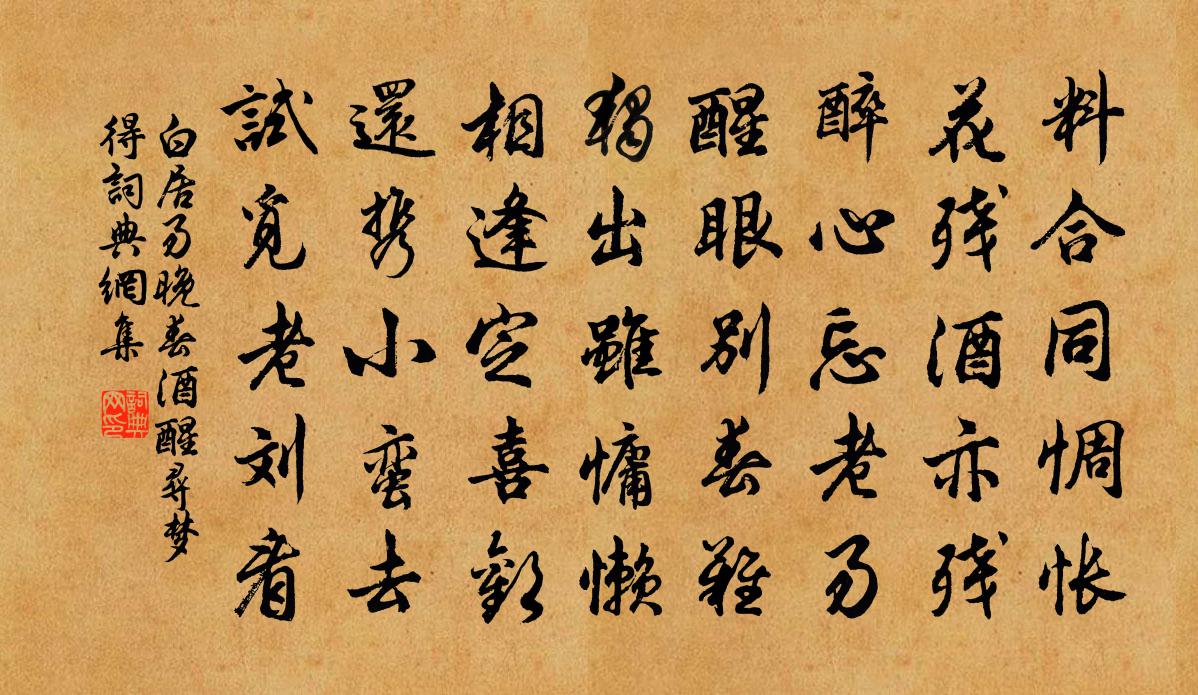 料合同惆怅
花残酒亦残
醉心忘老易
醒眼别春難
獨出雖慵懒
相逢定喜歡
還携小蛮去
試覓老刘看
白居易晚春酒醒尋梦
得詞典網集
詞典网印